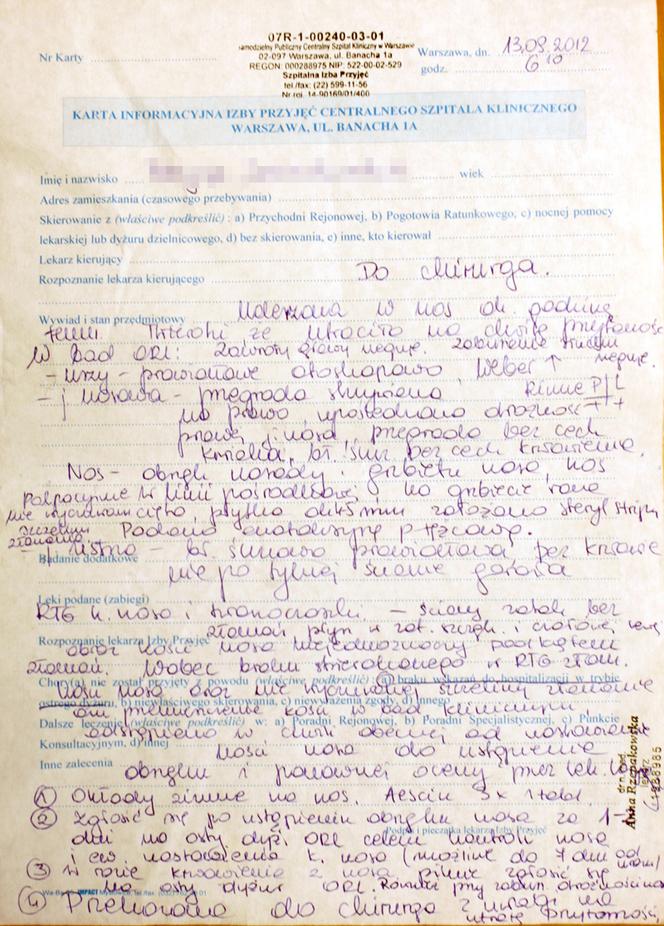 07R-1-00240-03-01
Samodzielny Publiczny Centralny Szpital Kliniczny w Warszawie
02-097 Warszawa, ul. Banacha 1a
REGON: 000288975 NIP: 522-00-02-529
Szpitalna Izba Przyjęć
tel./fax: (22) 599-11-56
Nr rej. 14-90169/01/400
Nr Karty
Warszawa, dn. 13.09.2012
godz. 6 10
KARTA INFORMACYJNA IZBY PRZYJĘĆ CENTRALNEGO SZPITALA KLINICZNEGO
WARSZAWA, UL. BANACHA 1A
Imię i nazwisko wiek
Adres zamieszkania (czasowego przebywania)
Skierowanie z (właściwe podkreślić) : a) Przychodni Rejonowej, b) Pogotowia Ratunkowego, c) nocnej pomocy
lekarskiej lub dyżuru dzielnicowego, d) bez skierowania, e) inne, kto kierował
Lekarz kierujący
Rozpoznanie lekarza kierującego Do chirurga.
Wywiad i stan przedmiotowy Uderzona w nos ok. godzinę
temu. Twierdzi że utraciła na chwilę przytomność
W bad ORL: Zawroty głowy neguje. Zaburzenia słuchu neguje.
- uszy - prawidłowe otoskopowo, Weber ↑
- j nosowa - przegroda skrzywiona Rinne P L
na prawo, upośledzona drożność + +
prawej j. nosa, przegroda bez cech
krwiaka, bł. śluz bez cech krwawienia.
Nos - obrzęk nasady i grzbietu nosa, nos
w linii pośrodkowej, na grzbiecie rana
płytka założono steryl stripy
Podano anatoksynę p tężcową.
j ustna - bł. śluzowa prawidłowa, bez krwawie
nie po tylnej ścianie gardła
Badanie dodatkowe
Leki podane (zabiegi)
RTG k. nosa i twarzoczaszki - ściany zatok bez
złamań płyn w zat. szczęk. i czołowej
Rozpoznanie lekarza Izby Przyjęć
obraz kości nosa niejednoznaczny pod kątem
złamań. Wobec braku stwierdzonego w RTG złam.
Chory(a) nie został przyjęty z powodu (właściwe podkreślić) : a) braku wskazań do hospitalizacji w trybie
kości nosa oraz nie wyczuwalnej szczeliny złamania
ostrego dyżuru, b) niewłaściwego skierowania, c) niewyrażenia zgody, d) innego
ani przemieszczenia kości w bad klinicznym
Dalsze leczenie (właściwe podkreślić) w: a) Poradni Rejonowej, b) Poradni Specjalistycznej, c) Punkcie
odstąpiono w chwili obecnej od nastawiania
Konsultacyjnym, d) innej
kości nosa do ustąpienia
Inne zalecenia
obrzęku i ponownej oceny przez lek.
Anna Rzepakowska
① Okłady zimne na nos. Aescin 3x 1 tabl.
② Zgłosić się po ustąpieniu obrzęku nosa za
dni na ostry dyż ORL celem kontroli nosa
Podpis i pieczątka lekarza Izby Przyjęć
i ew nastawienia k. nosa (możliwe do 7 dni od
③ W razie krwawienia z nosa pilnie zgłosić się
na ostry dyżur ORL.
④ Przekazana do chirurga z uwagi na
utratę przytomności